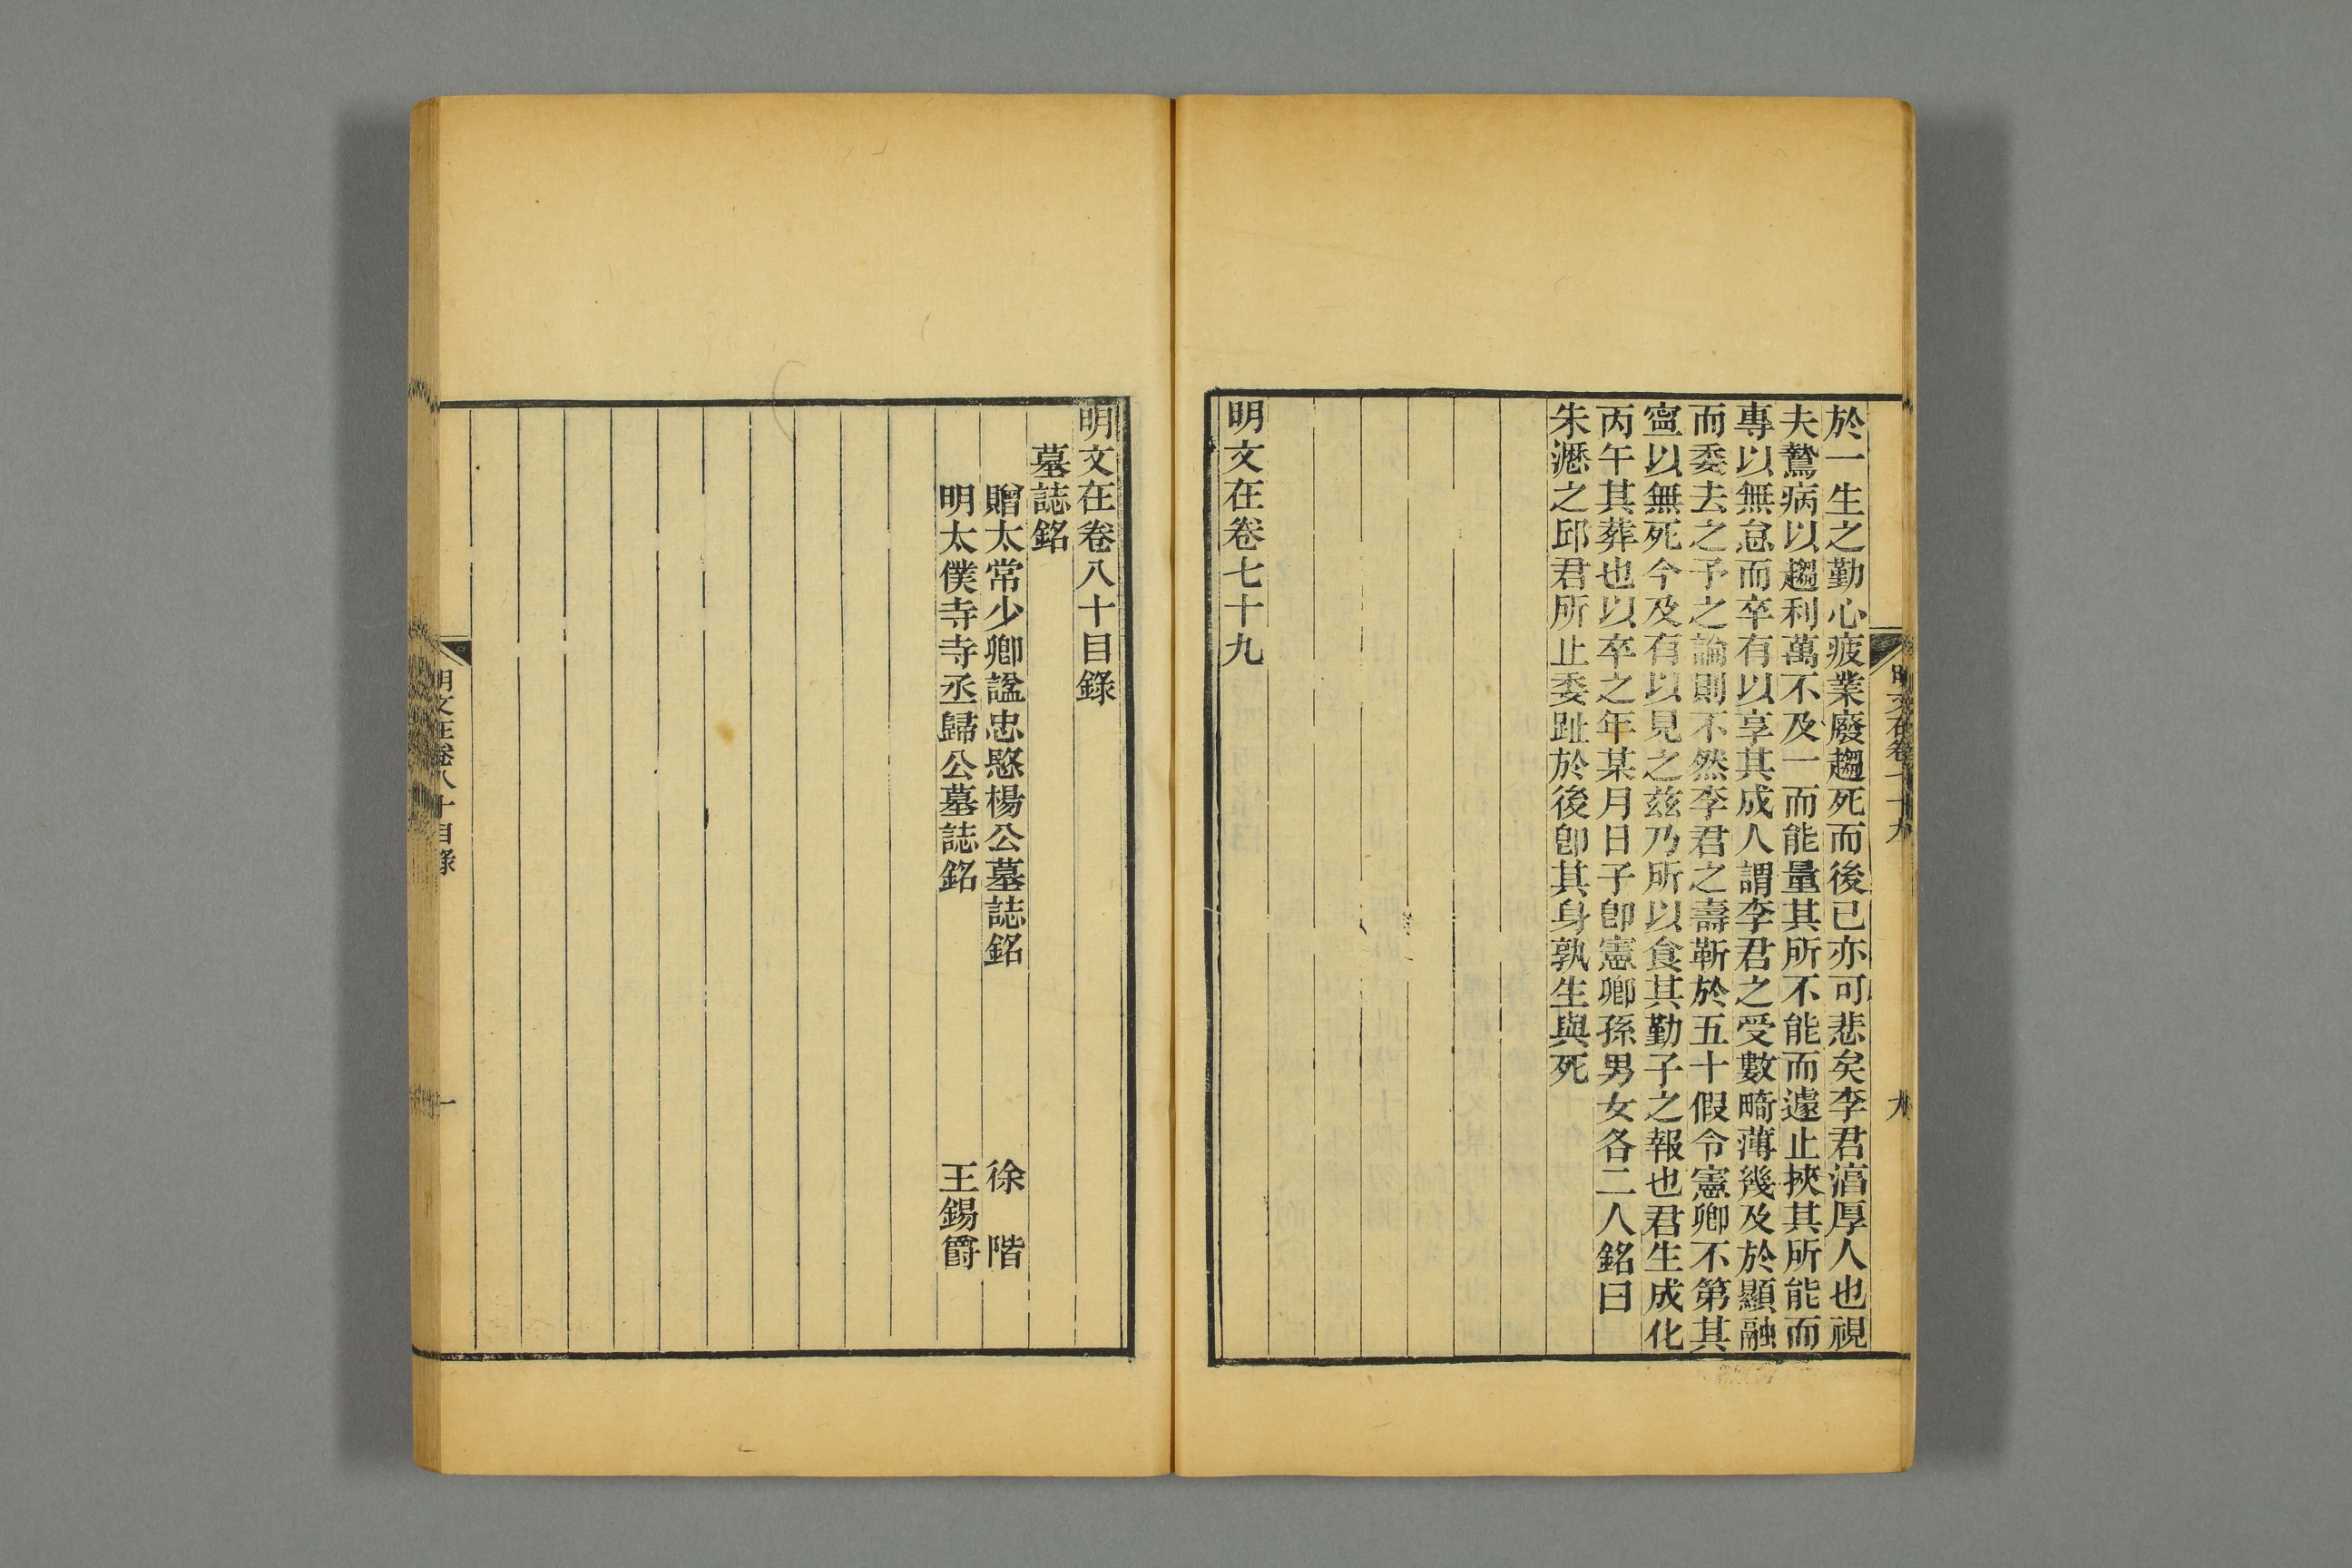 於一生之勤心疲業廢趨死而後已亦可悲矣李君湻厚人也視
夫驁病以趨利萬不及一而能量其所不能而遽止挾其所能而
專以無怠而卒有以享其成人謂李君之受數畸薄幾及於顯融
而委去之予之論則不然李君之壽靳於五十假令憲卿不第其
寧以無死今及有以見之茲乃所以食其勤子之報也君生成化
丙午其葬也以卒之年某月日子卽憲卿孫男女各二人銘曰
朱瀝之邱君所止委趾於後卽其身孰生與死
明文在卷七十九
明文在卷八十目錄
墓誌銘
贈太常少卿諡忠愍楊公墓誌銘 徐 階
明太僕寺寺丞歸公墓誌銘 王錫爵
明文在卷八十目錄
一